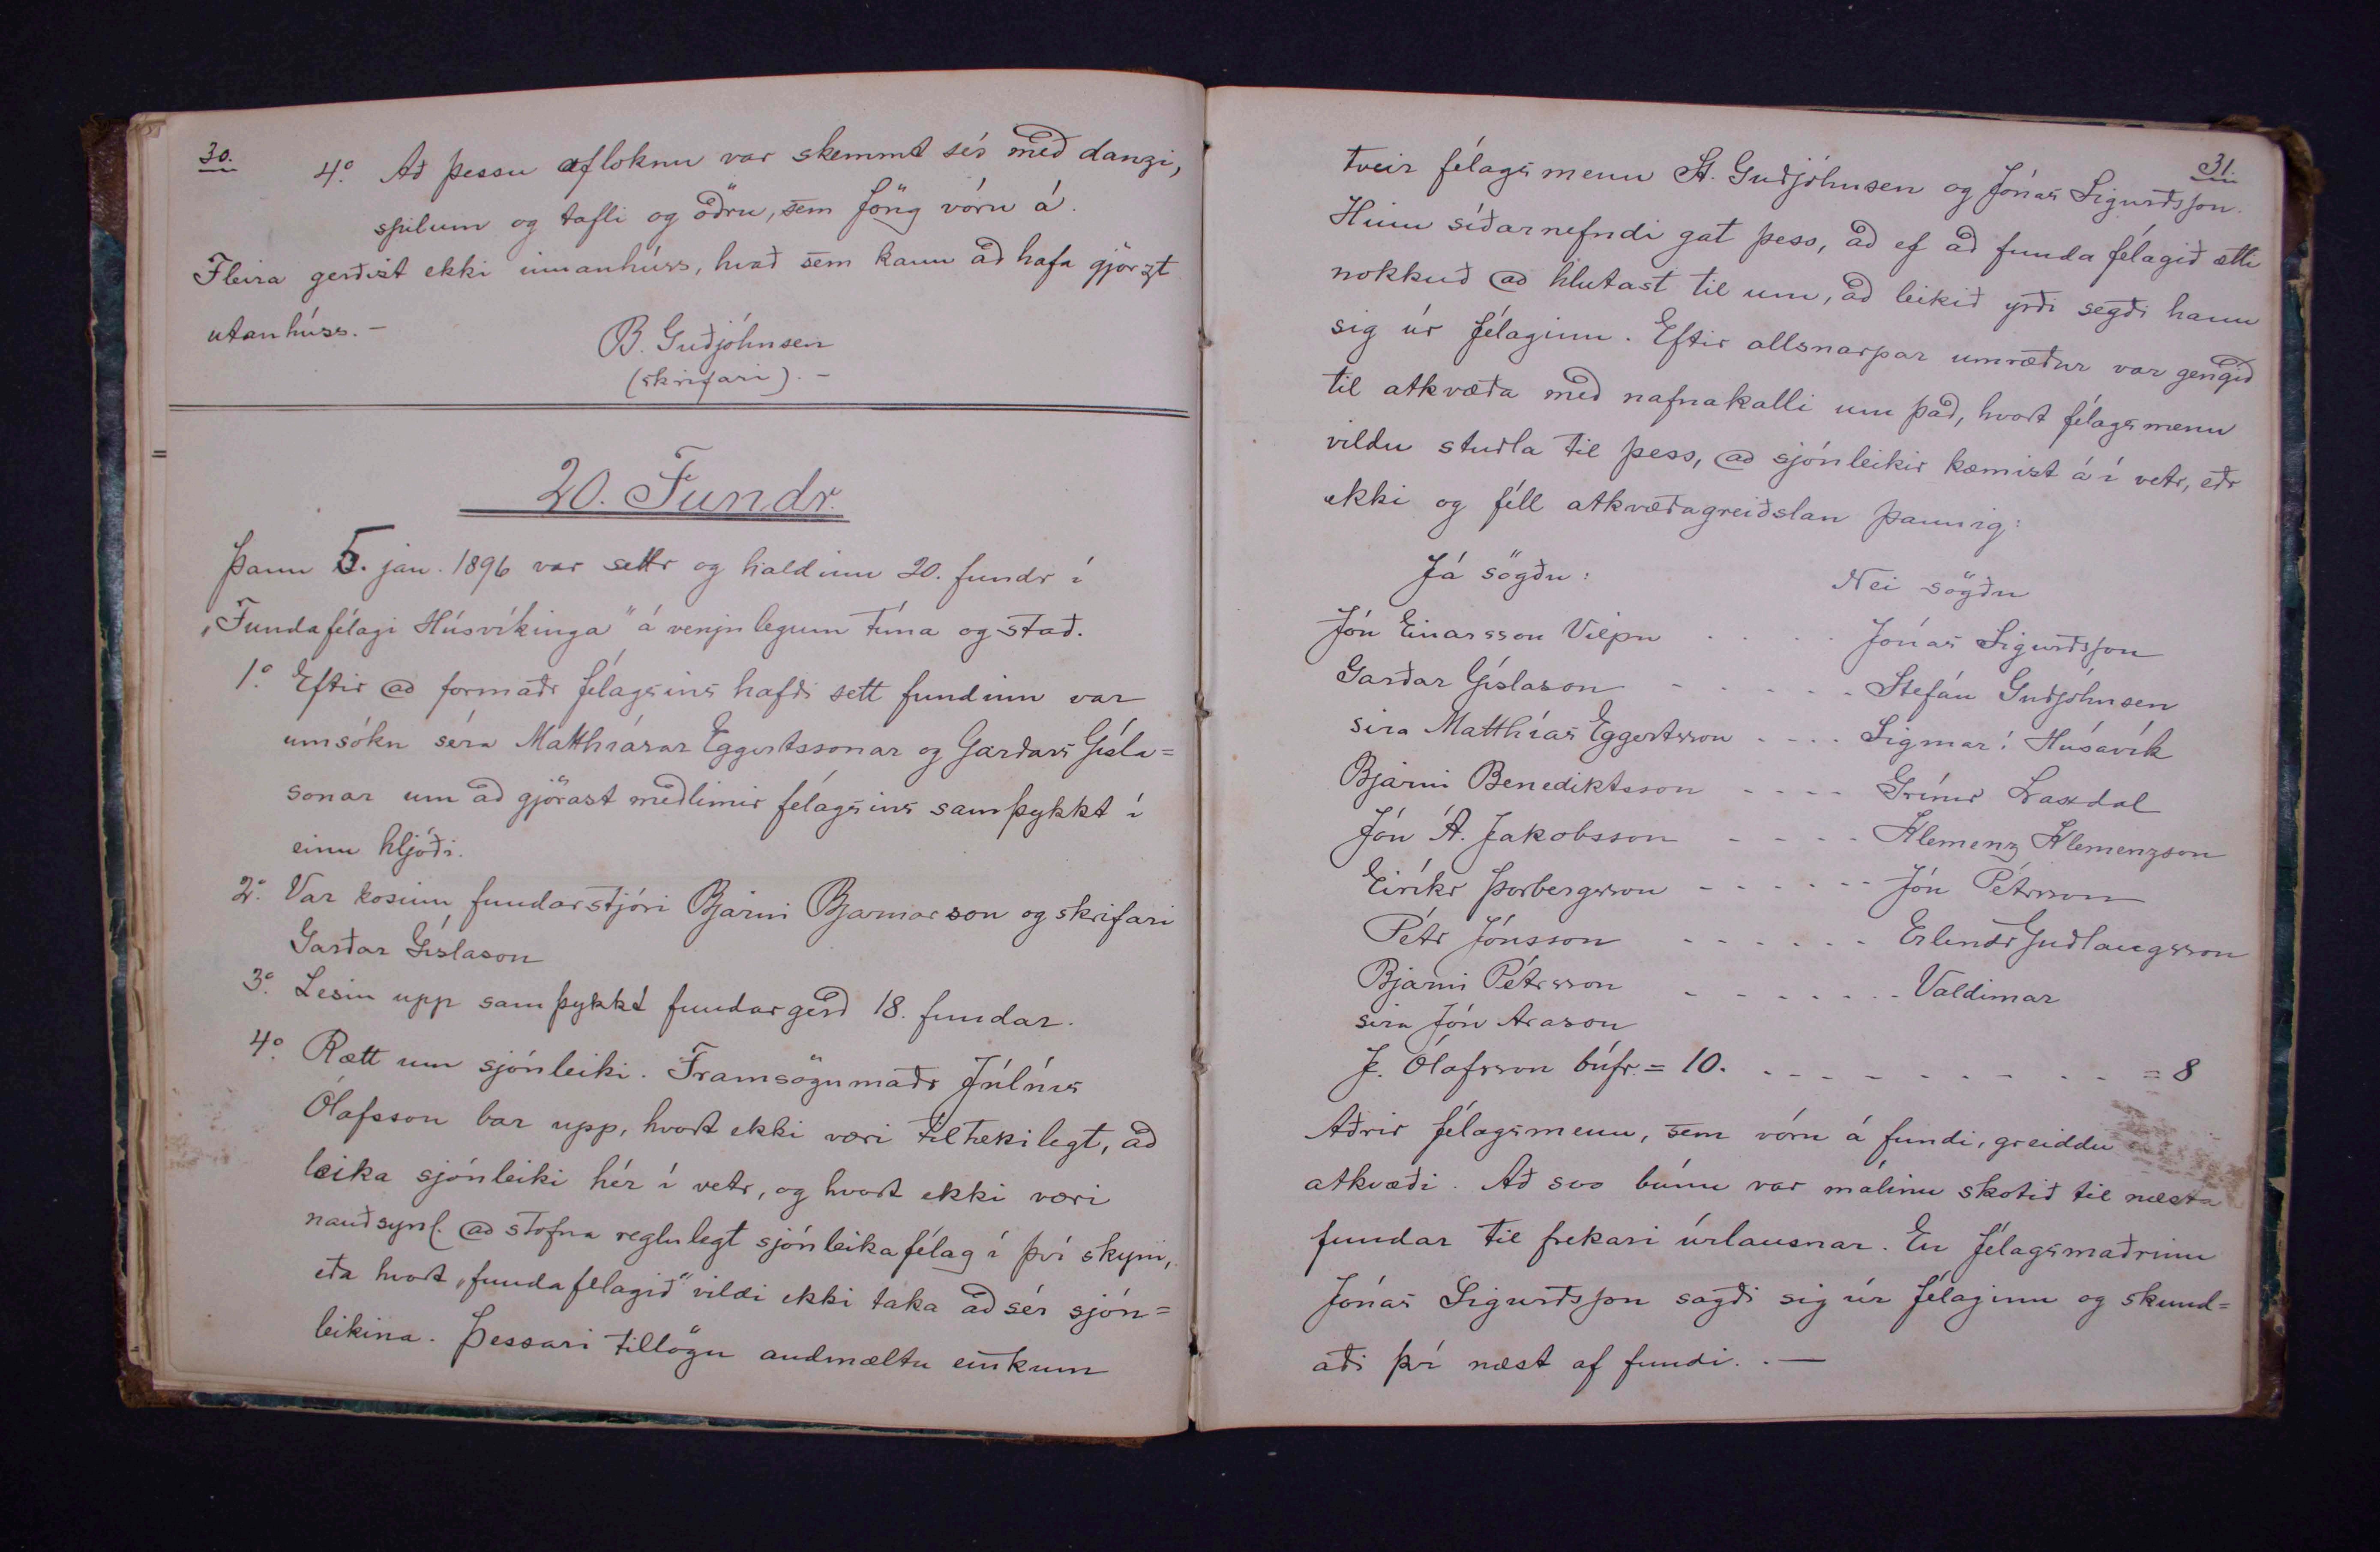 30.
4.° Að þessu afloknu var skemmt sér með danzi,
spilum og tafli og öðru, sem föng vóru á.
Fleira gerðizt ekki innanhúss, hvað sem kann að hafa gjörzt
utanhúss. –
B. Guðjohnsen
(skrifari). –
20. Fundr.
Þann 5. jan. 1896 var settr og haldinn 20. fundr í
„Fundafélagi Húsvíkinga" á venjulegum tíma og stað.
1.° Eftir að formaðr félagsins hafði sett fundinn var
umsókn séra Matthíasar Eggertssonar og Garðars Gísla=
sonar um að gjörast meðlimir félagsins samþykkt í
einu hljóði.
2.° Var kosinn fundarstjóri Bjarni Bjarnarson og skrifari
Garðar Gíslason
3.° Lesin upp samþykkt fundargerð 18. fundar.
4.° Rætt um sjónleiki. Framsögumaðr Júlíus
Ólafsson bar upp, hvort ekki væri tiltækilegt, að
leika sjónleiki hér í vetr, og hvort ekki væri
nauðsynl. að stofna reglulegt sjónleikafélag í því skyni,
eða hvort „fundafélagið" vildi ekki taka að sér sjón=
leikina. Þessari tillögu andmæltu einkum
31.
tveir félagsmenn St. Guðjohnsen og Jónas Sigurðsson.
Hinn síðarnefndi gat þess, að ef að funda félagið ætti
nokkuð að hlutast til um, að leikið yrði segði hann
sig úr félaginu. Eftir allsnarpar umræður var gengið
til atkvæða með nafnakalli um það, hvort félagsmenn
vildu stuðla til þess, að sjónleikir kæmist á í vetr, eðr
ekki og féll atkvæðagreiðslan þannig:
Já sögðu: Nei sögðu
Jón Einarsson Vilpu . . . . Jónas Sigurðsson
Garðar Gíslason - - - - - - Stefán Guðjohnsen
síra Matthías Eggertsson - - - - Sigmar í Húsavík
Bjarni Benediktsson - - - - Grímr Laxdal
Jón Á. Jakobsson - - - - Klemenz Klemenzson
Eiríkr Þorbergsson - - - - - - Jón Pétrsson
Pétr Jónsson - - - - - - Erlendr Guðlaugsson
Bjarni Pétrsson - - - - - - - Valdimar
síra Jón Arason
J. Ólafsson búfr. = 10. - - - - - - - - - = 8
Aðrir félagsmenn, sem vóru á fundi, greiddu
atkvæði. Að svo búnu var málinu skotið til næsta
fundar til frekari úrlausnar. En félagsmaðrinn
Jónas Sigurðsson sagði sig úr félaginu og skund=
aði því næst af fundi. . —